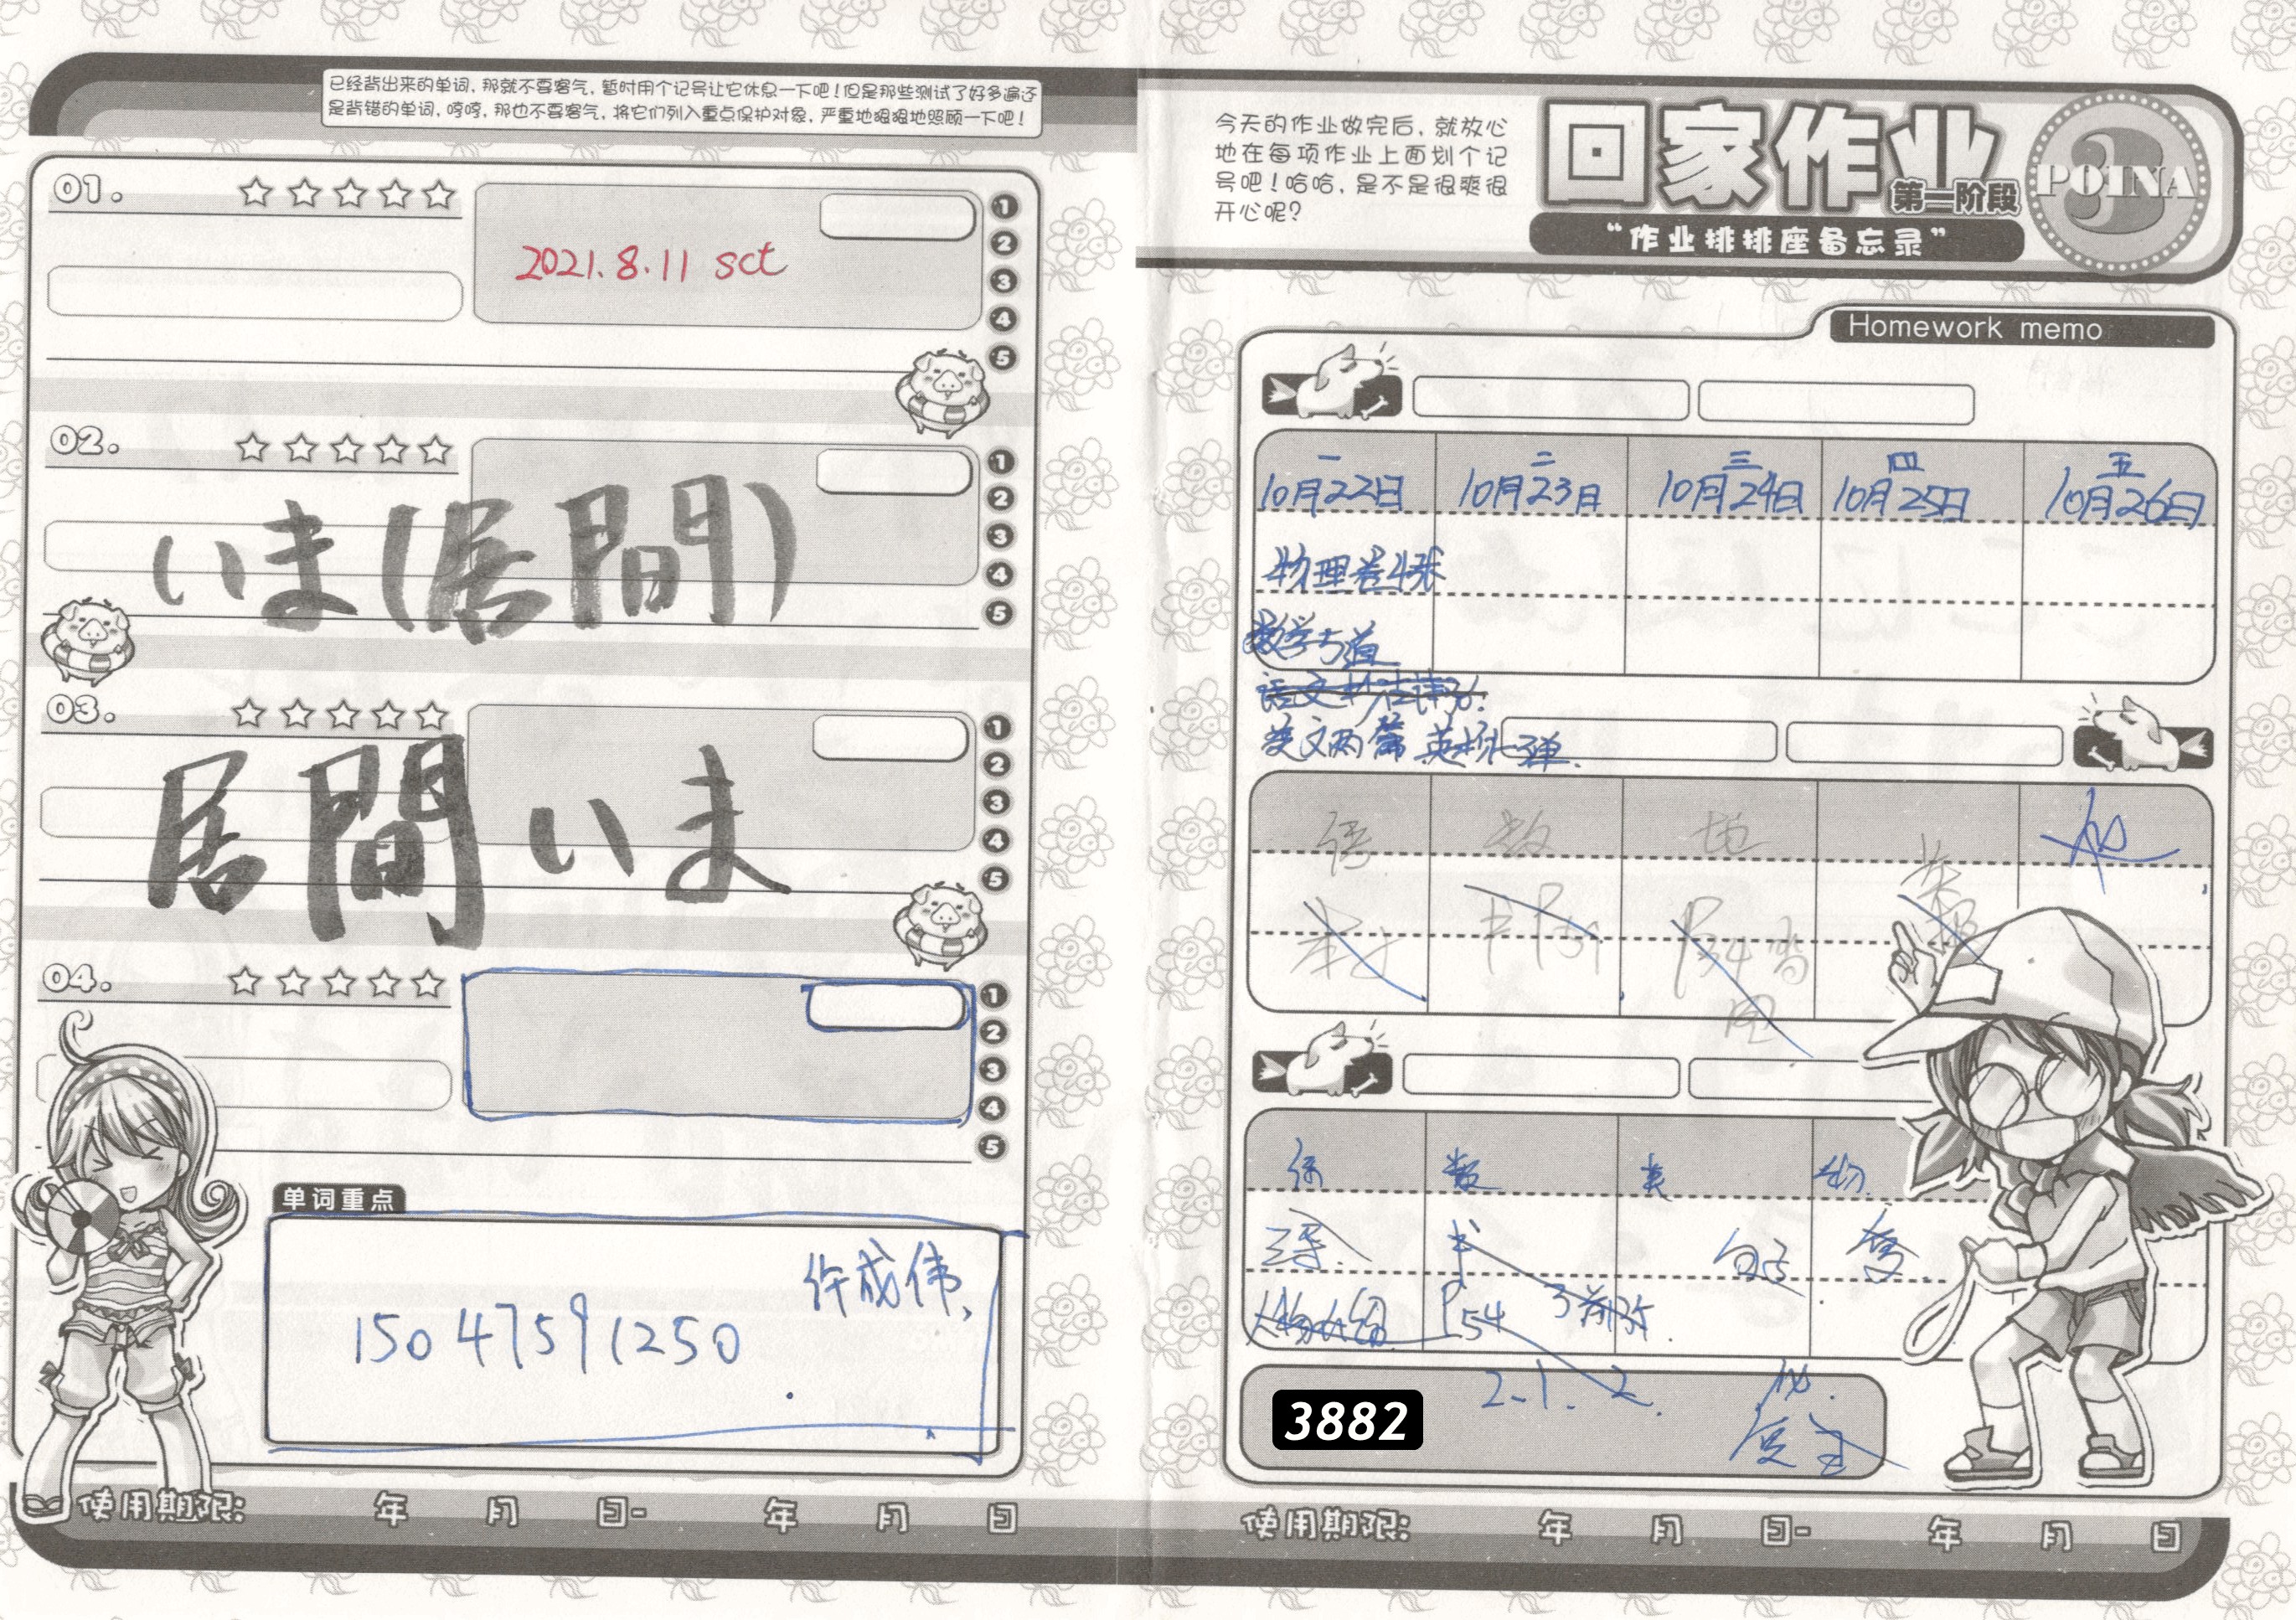 已经背出来的单词，那就不要客气，暂时用个记号让它休息一下吧！但是那些测试了好多遍还
是背错的单词，哼哼，那也不要客气，将它们列入重点保护对象，严重地狠狠地照顾一下吧！
01.
2021.8.11 sct
1
2
3
4
5
02.
いま(居間)
1
2
3
4
5
03.
居間 いま
1
2
3
4
5
04.
1
2
3
4
5
单词重点
许成伟,
15047591250
使用期限: 年 月 日- 年 月 日
今天的作业做完后，就放心
地在每项作业上面划个记
号吧！哈哈，是不是很爽很
开心呢？
回家作业
第一阶段
POINA
3
“作业排排座备忘录”
Homework memo
一 二 三 四 五
10月22日 10月23日 10月24日 10月25日 10月26日
物理卷4张
数学5道
语文
英文两篇 英
语 数 地 英
P54
语 数 英 物
书 句子
P54
2-1. 2.
3882
使用期限: 年 月 日- 年 月 日